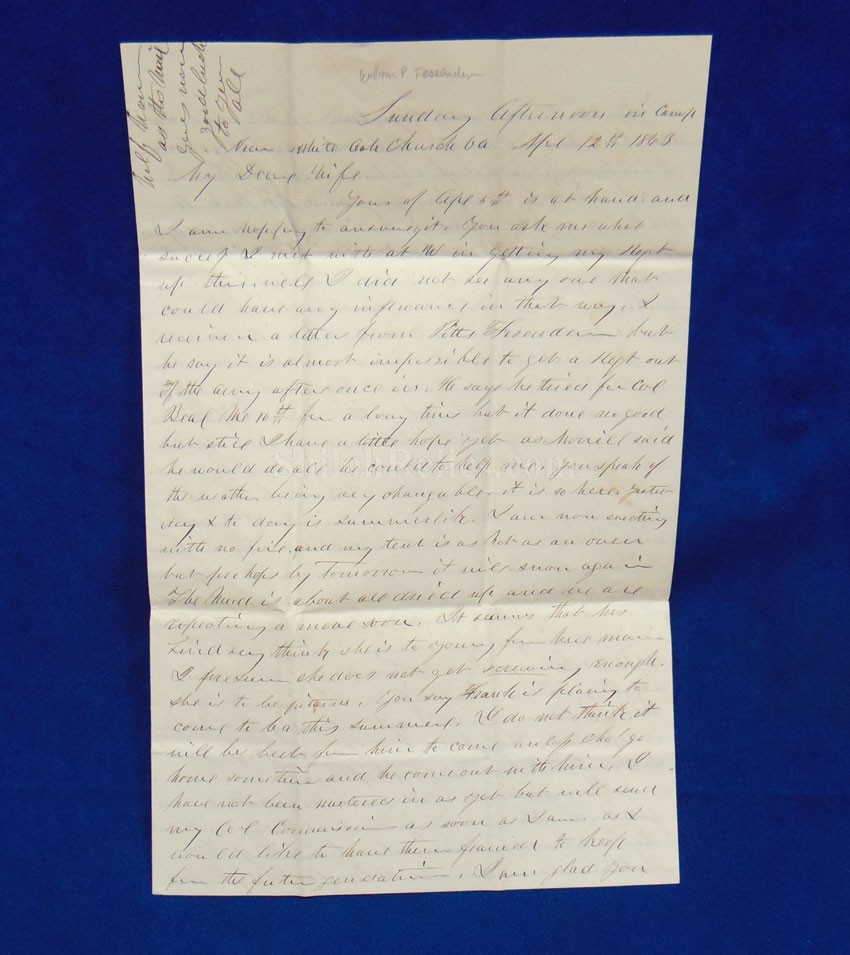 William P. Fessenden
Sunday Afternoon in Camp
Near White Oak Church Va Apl 12th 1863
My Dear Wife
Yours of Apl 5th is at hand and
I am hopeing to answer it. You ask me what
sucess I met with at W in getting my Regt
up this, well I did not see any one that
could have any influance in that way. I
received a letter from Pitt Fesenden but
he say it is almost impossible to get a Regt out
of the army after once in. He says he tried for Col
Beal Me 10th for a long time but it done no good
but still I have a little hope yet as Morrill said
he would do all he could to help me. You speak of
the weather being very changable. it is so here. yester
day & to day is summerlike. I am now
with no fire and my tent is as hot as an oven
but prehaps by tomorrow it will snow again
The Mud is about all dried up and we are
expecting a move soon. It seems that Mrs
think she is to young for true man
I presum she does not get screwing enough.
she is to be . You say Frank is plaing to
come to be this summer. I do not think it
will be best for him to come unless go
home some time and he come out with him. I
have not been mustered in as yet but will send
my Col Commission as soon as I am. as I
would like to have them framed to keep
for the futer generation. I am glad you
help
as the Mail
goes now
Good
to you
all